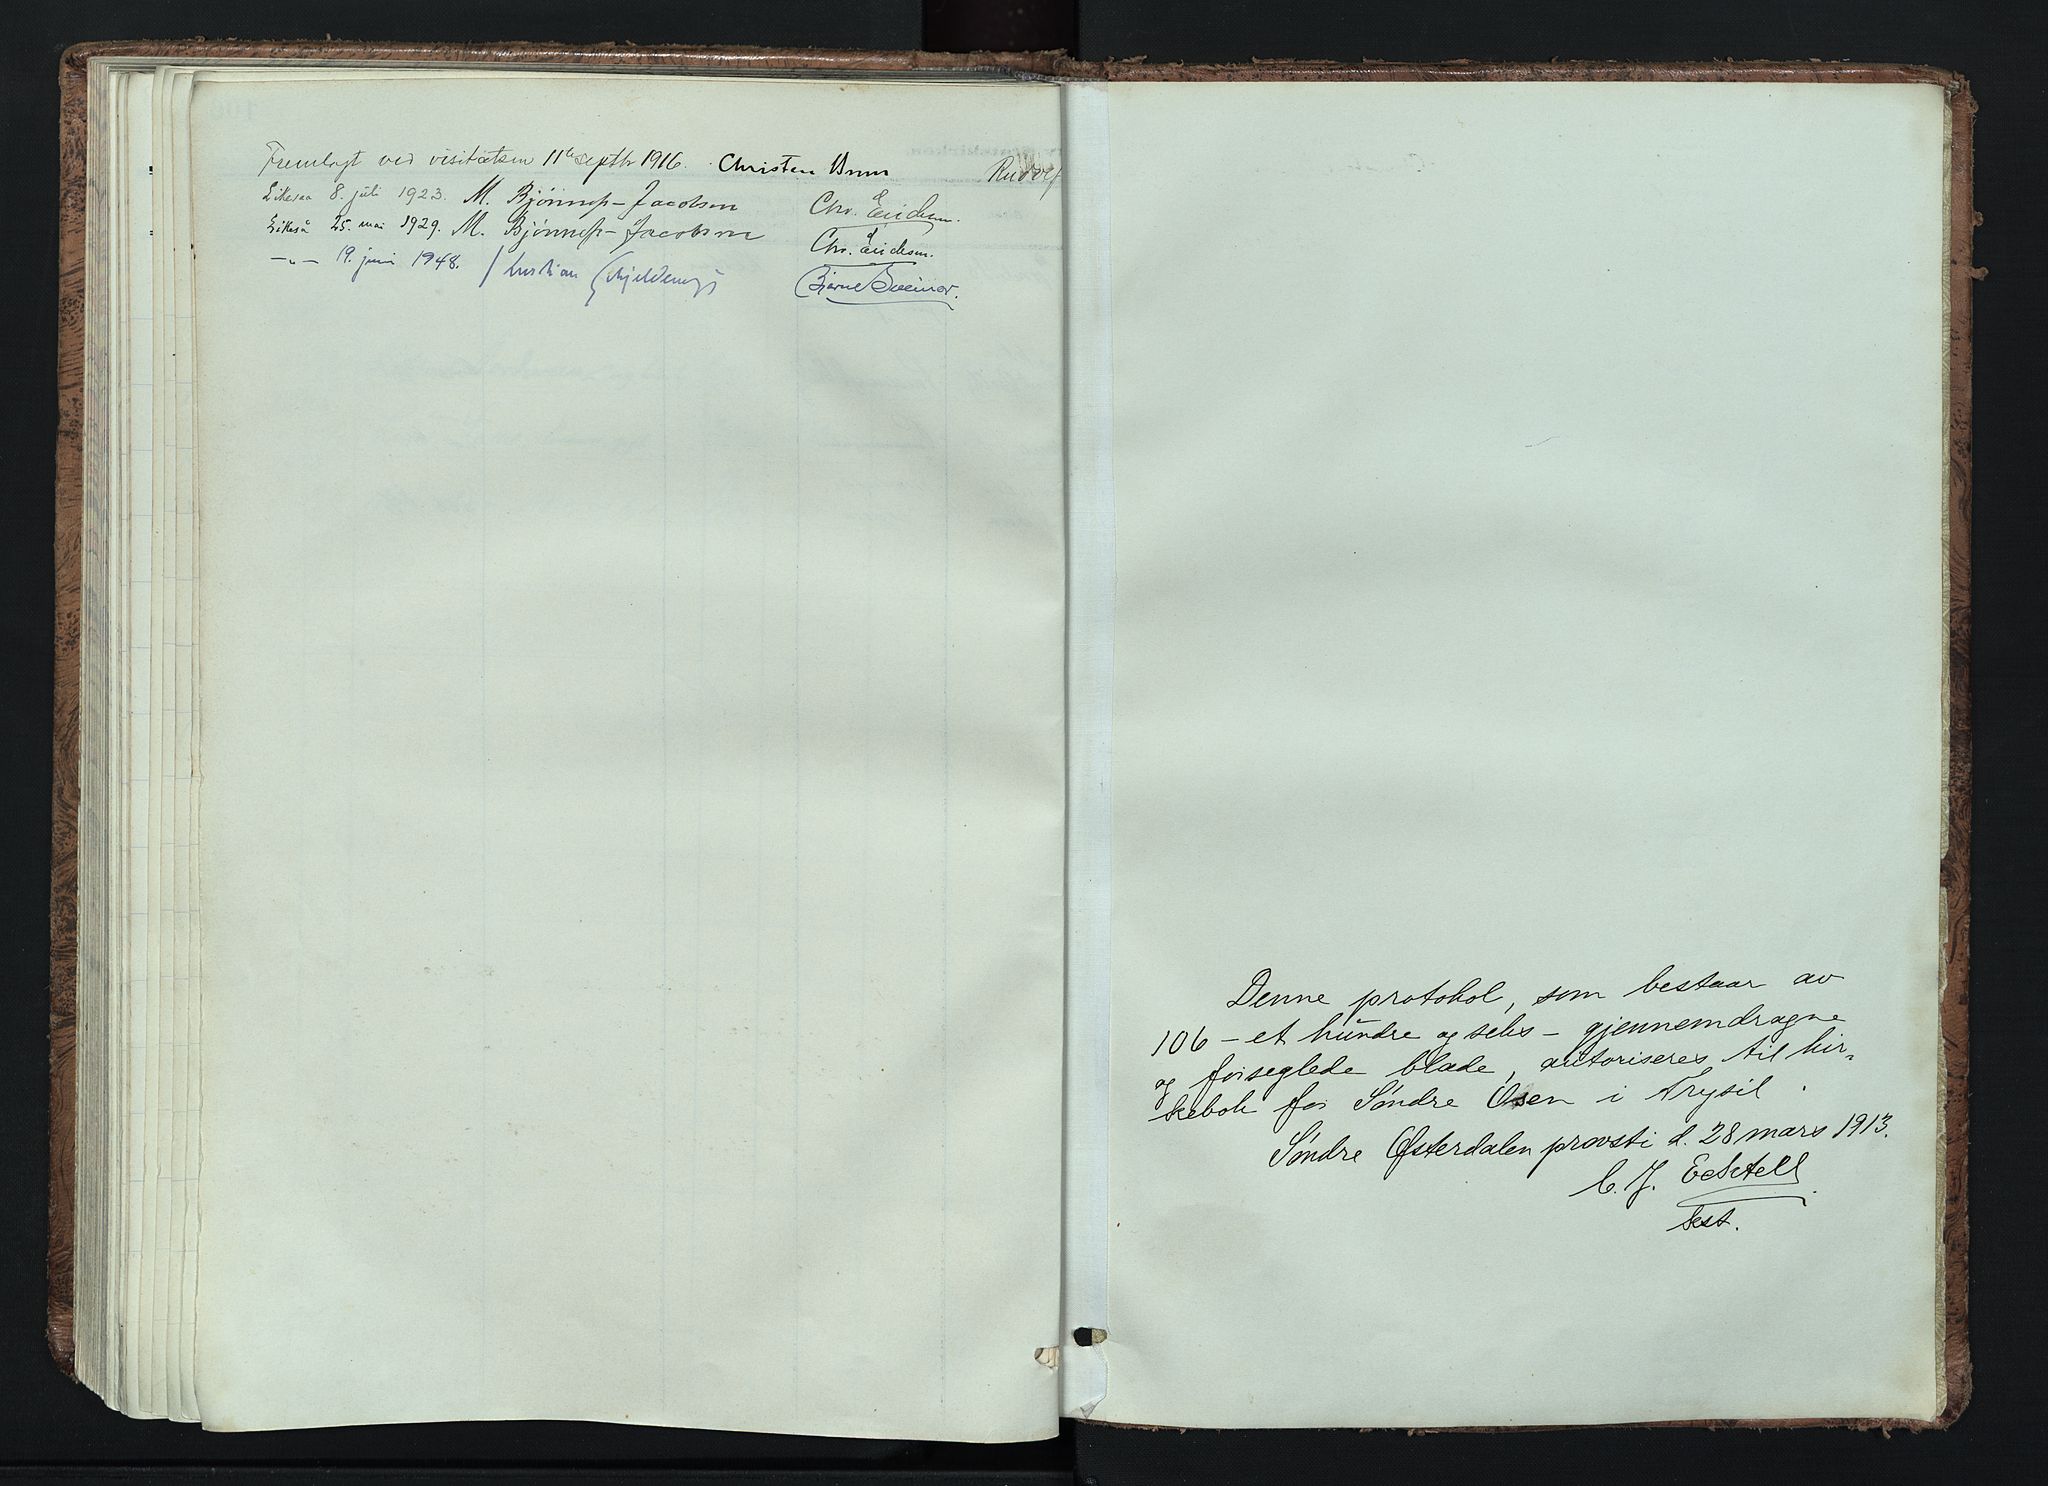 Fremlagt ved visitatsen 11te septbr 1916. Christen Brun Rudolf
Likesaa 8. juli 1923. M. Bjønnes-Jacobsen Chr. Eriksen.
Likeså 25. mai 1929. M. Bjønnes-Jacobsen Chr. Eriksen.
-"- 19. juni 1948. Kristian Schjelderup Bjarne
Denne protokol, som bestaar av
106 - et hundre og seks - gjennemdragne
og forseglede blade, autoriseres til kir-
kebok for Søndre Osen i Trysil.
Søndre Østerdalen provsti d. 28 mars 1913.
C. J. Eckhell
kst.